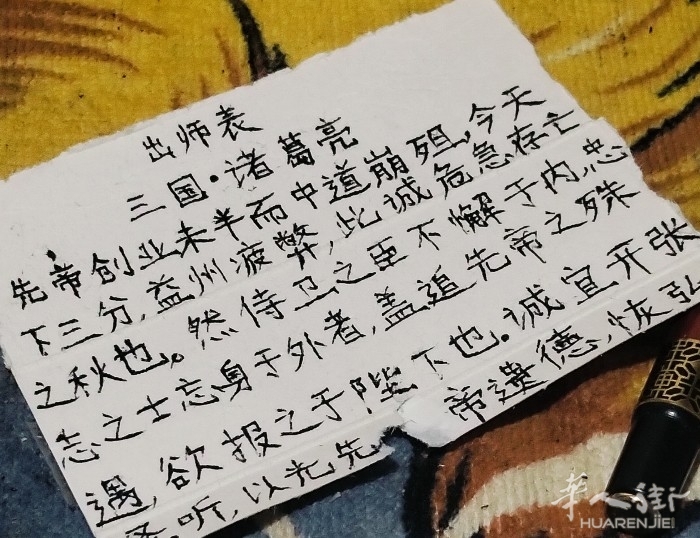 出师表
三国·诸葛亮
先帝创业未半而中道崩殂,今天
下三分,益州疲弊,此诚危急存亡
之秋也。然侍卫之臣不懈于内,忠
志之士忘身于外者,盖追先帝之殊
遇,欲报之于陛下也.诚宜开张
圣听,以光先帝遗德,恢弘
华人街
HUARENJIEI